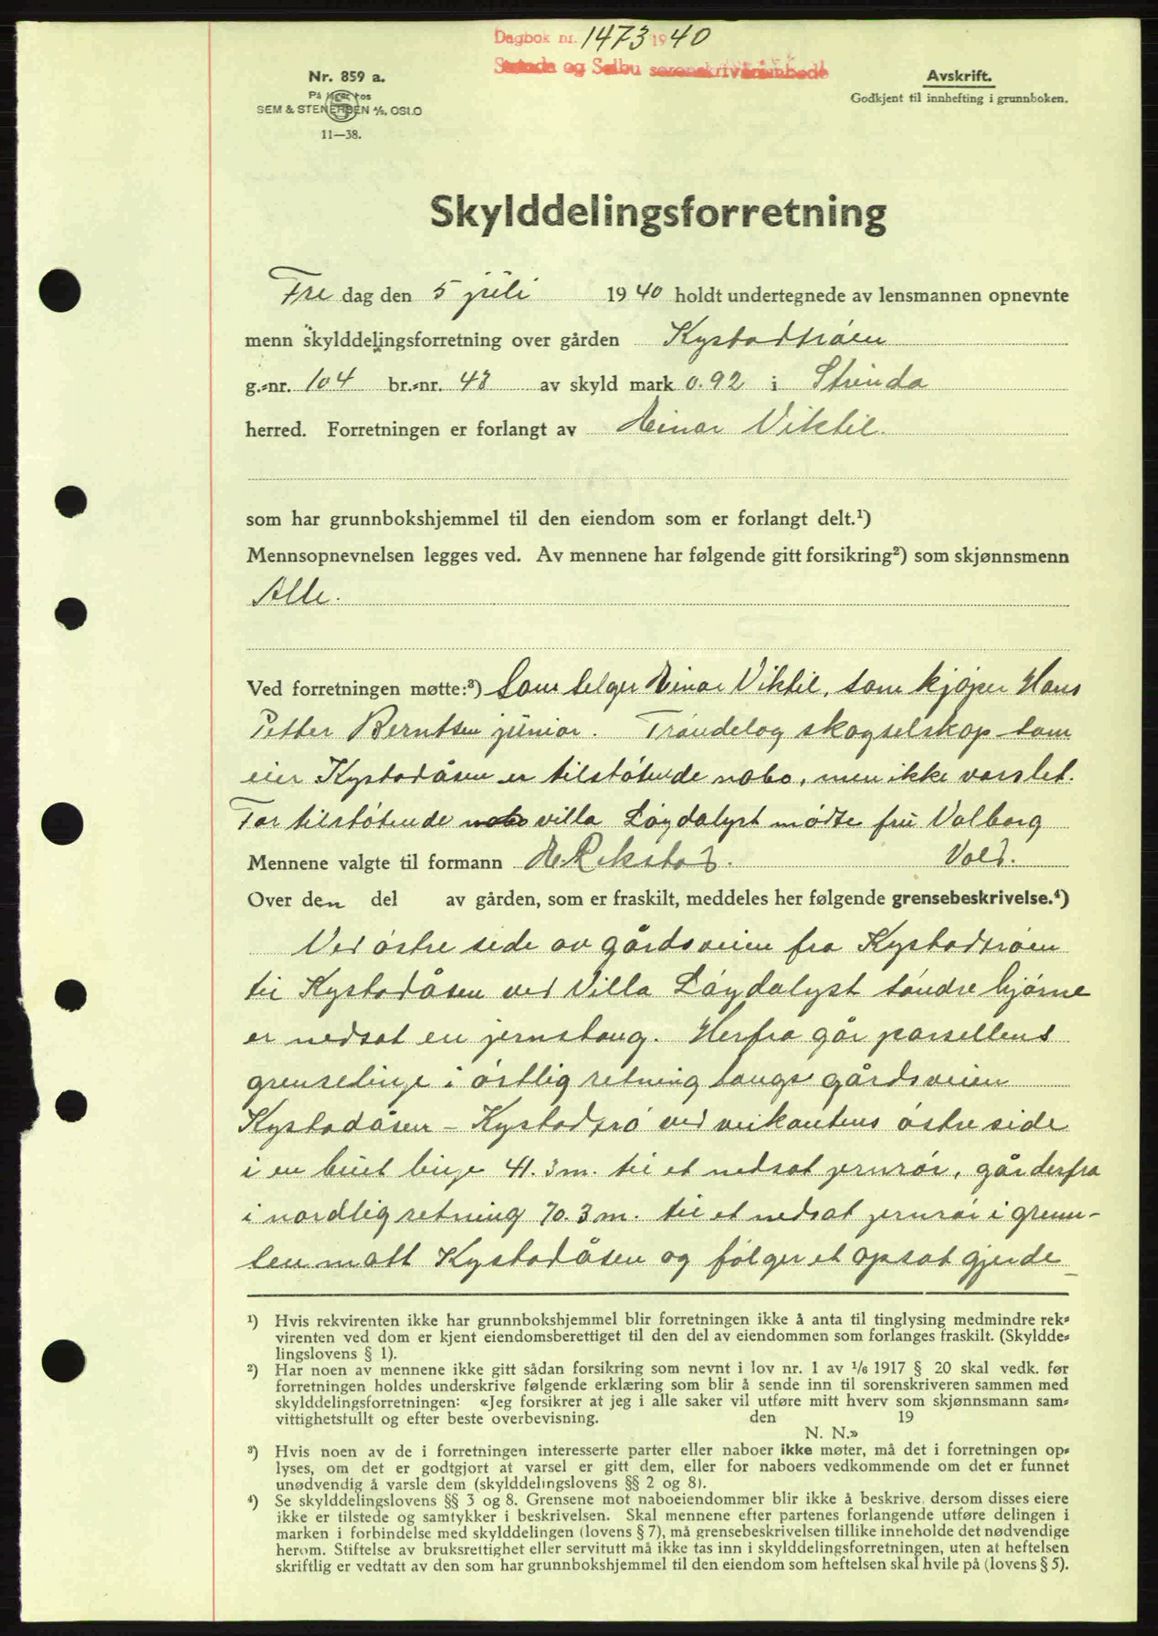 Dagbok nr. 1473 1940
Strinda og Selbu sorenskriverembede
Nr. 859 a.
På lager hos
SEM & STENERSEN A/S, OSLO
11—38.
Avskrift.
Godkjent til innhefting i grunnboken.
Skylddelingsforretning
Fre dag den 5 juli 1940 holdt undertegnede av lensmannen opnevnte
menn skylddelingsforretning over gården Kystadtrøen
g.-nr. 104 br.-nr. 48 av skyld mark 0.92 i Strinda
herred. Forretningen er forlangt av Einar Viktil.
som har grunnbokshjemmel til den eiendom som er forlangt delt.¹)
Mennsopnevnelsen legges ved. Av mennene har følgende gitt forsikring²) som skjønnsmenn
Alle.
Ved forretningen møtte:³) Som selger Einar Viktil, som kjøper Hans
Petter Berntsen junior. Trøndelag skogselskap som
eier Kystadåsen er tilstøtende nabo, men ikke varslet.
For tilstøtende villa Løgdalyst mødte fru Valborg
Mennene valgte til formann Vold.
Over den del av gården, som er fraskilt, meddeles her følgende grensebeskrivelse.⁴)
Ved østre side av gårdsveien fra Kystadtrøen
til Kystadåsen ved Villa Løgdalyst søndre hjørne
er nedsat en jernstang. Herfra går parsellens
grenselinje i østlig retning langs gårdsveien
Kystadåsen – Kystadtrø ved veikantens østre side
i en buet linje 41.3 m. til et nedsat jernrør, går derfra
i nordlig retning 70.3 m. til et nedsat jernrør i grenn-
sen mott Kystadåsen og følger et opsat gjerde
¹) Hvis rekvirenten ikke har grunnbokshjemmel blir forretningen ikke å anta til tinglysing medmindre rek-
virenten ved dom er kjent eiendomsberettiget til den del av eiendommen som forlanges fraskilt. (Skyldde-
lingslovens § 1).
²) Har noen av mennene ikke gitt sådan forsikring som nevnt i lov nr. 1 av 1/6 1917 § 20 skal vedk. før
forretningen holdes underskrive følgende erklæring som blir å sende inn til sorenskriveren sammen med
skylddelingsforretningen: «Jeg forsikrer at jeg i alle saker vil utføre mitt hverv som skjønnsmann sam-
vittighetsfullt og efter beste overbevisning. den 19
N. N.»
³) Hvis noen av de i forretningen interesserte parter eller naboer ikke møter, må det i forretningen op-
lyses, om det er godtgjort at varsel er gitt dem, eller for naboers vedkommende om det er funnet
unødvendig å varsle dem (skylddelingslovens §§ 2 og 8).
⁴) Se skylddelingslovens §§ 3 og 8. Grensene mot naboeiendommer blir ikke å beskrive, dersom disses eiere
ikke er tilstede og samtykker i beskrivelsen. Skal mennene efter partenes forlangende utføre delingen i
marken i forbindelse med skylddelingen (lovens § 7), må grensebeskrivelsen tillike inneholde det nødvendige
herom. Stiftelse av bruksrettighet eller servitutt må ikke tas inn i skylddelingsforretningen, uten at heftelsen
skriftlig er vedtatt av den som har grunnbokshjemmel til den eiendom som heftelsen skal hvile på (lovens § 5).